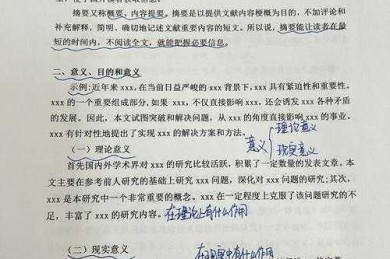 摘要又称概要、内容提要。摘要是以提供文献内容梗概为目的，不加评论和
补充解释，简明、确切地记述文献重要内容的短文。所以说，摘要能让读者在最
短的时间内，不阅读全文，就能把握必要信息。
二、意义、目的和意义
示例：近年来 xxx，在当前日益严峻的 xxx 背景下，xxx 具有紧迫性和重要性。
xxx 的一个重要组成部分，如果 xxx，不仅直接影响 xxx，还会诱发 xxx 各种矛盾
的发展。因此，本文试图突破和解决问题，从 xxx 的角度直接影响 xxx 的事业。
xxx 有针对性地提出了实现 xxx 的解决方案和方法。
意义
理论意义
现实意义
（一）理论意义
首先国内外学术界对 xxx 的研究比较活跃，积累了一定数量的发表文章。本
文主要在参考前人研究的基础上研究 xxx 问题，深化对 xxx 问题的研究；其次，
xxx 是本研究中一个非常重要的概念。xxx 在一定程度上克服了该问题研究的不
足，丰富了 xxx 的研究内容。
在理论上有什么作用
（二）现实意义
在现实中有什么作用